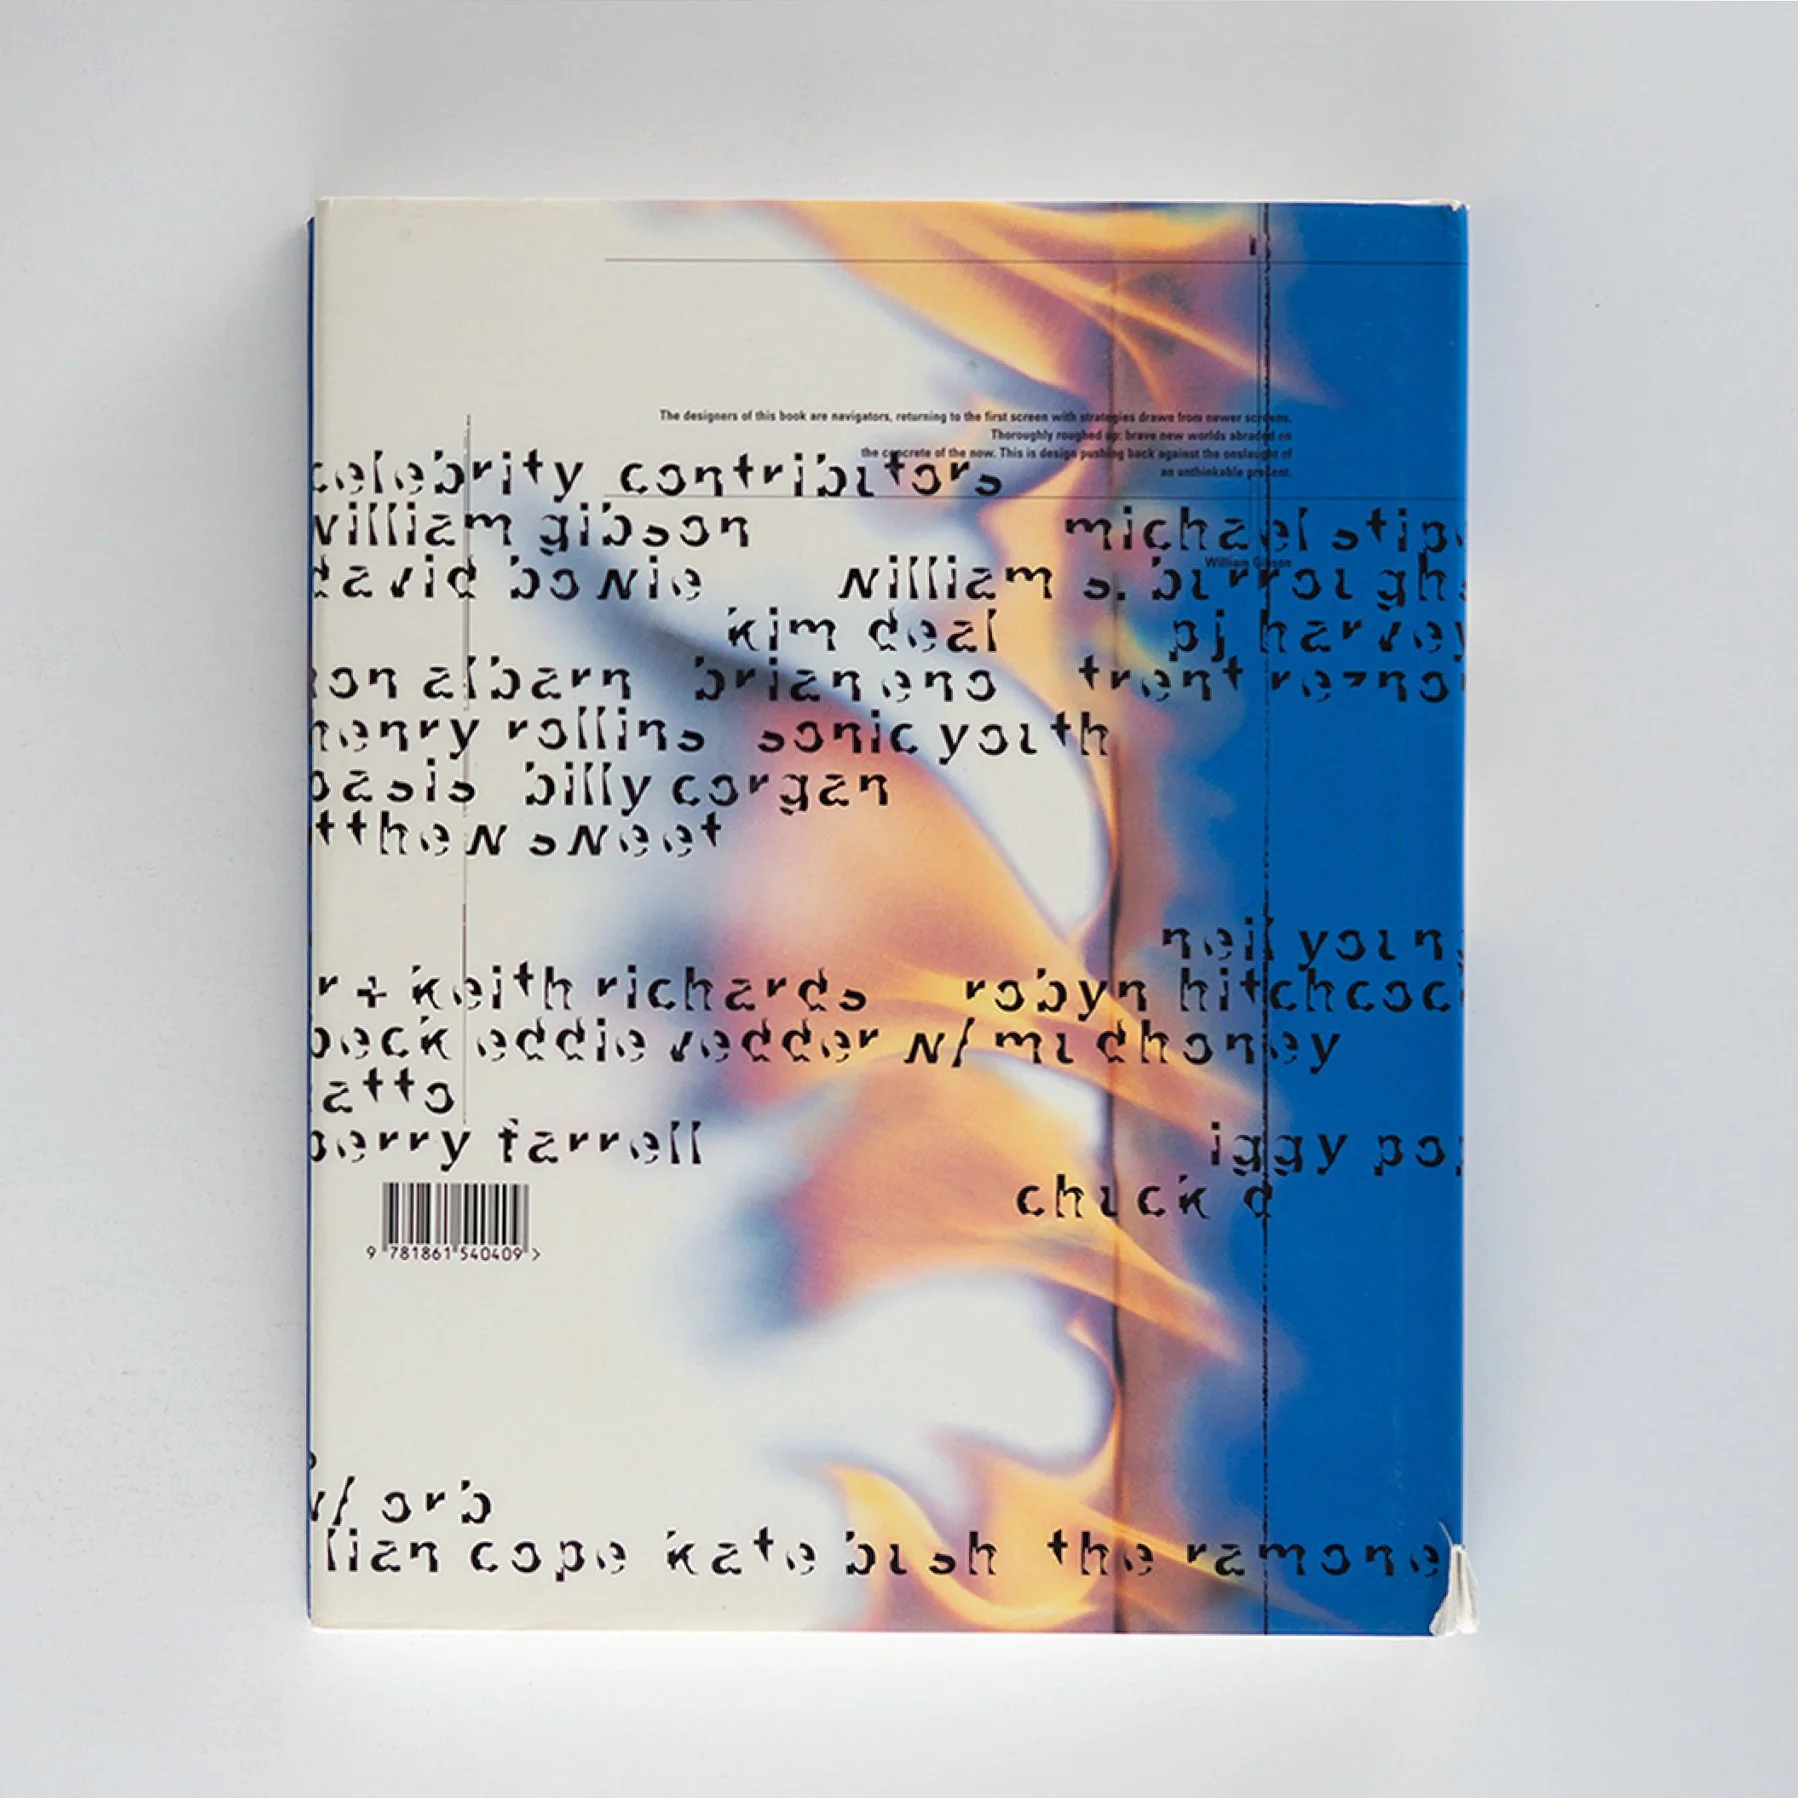 The designers of this book are navigators, returning to the first screen with strategies drawn from newer screens.
Thoroughly roughed up: brave new worlds abraded on
the concrete of the now. This is design pushing back against the onslaught of
an unthinkable present.
celebrity contributors
william gibson michael stipe
William Gibson
david bowie william s. burroughs
kim deal pj harvey
on albarn brian eno trent rezno
henry rollins sonic youth
oasis billy corgan
tthew sweet
neil young
r + keith richards robyn hitchcoc
beck eddie vedder w/ mudhoney
atto
perry farrell iggy pop
chuck d
9 781861 540409 >
w/ orb
lian cope kate bush the ramone